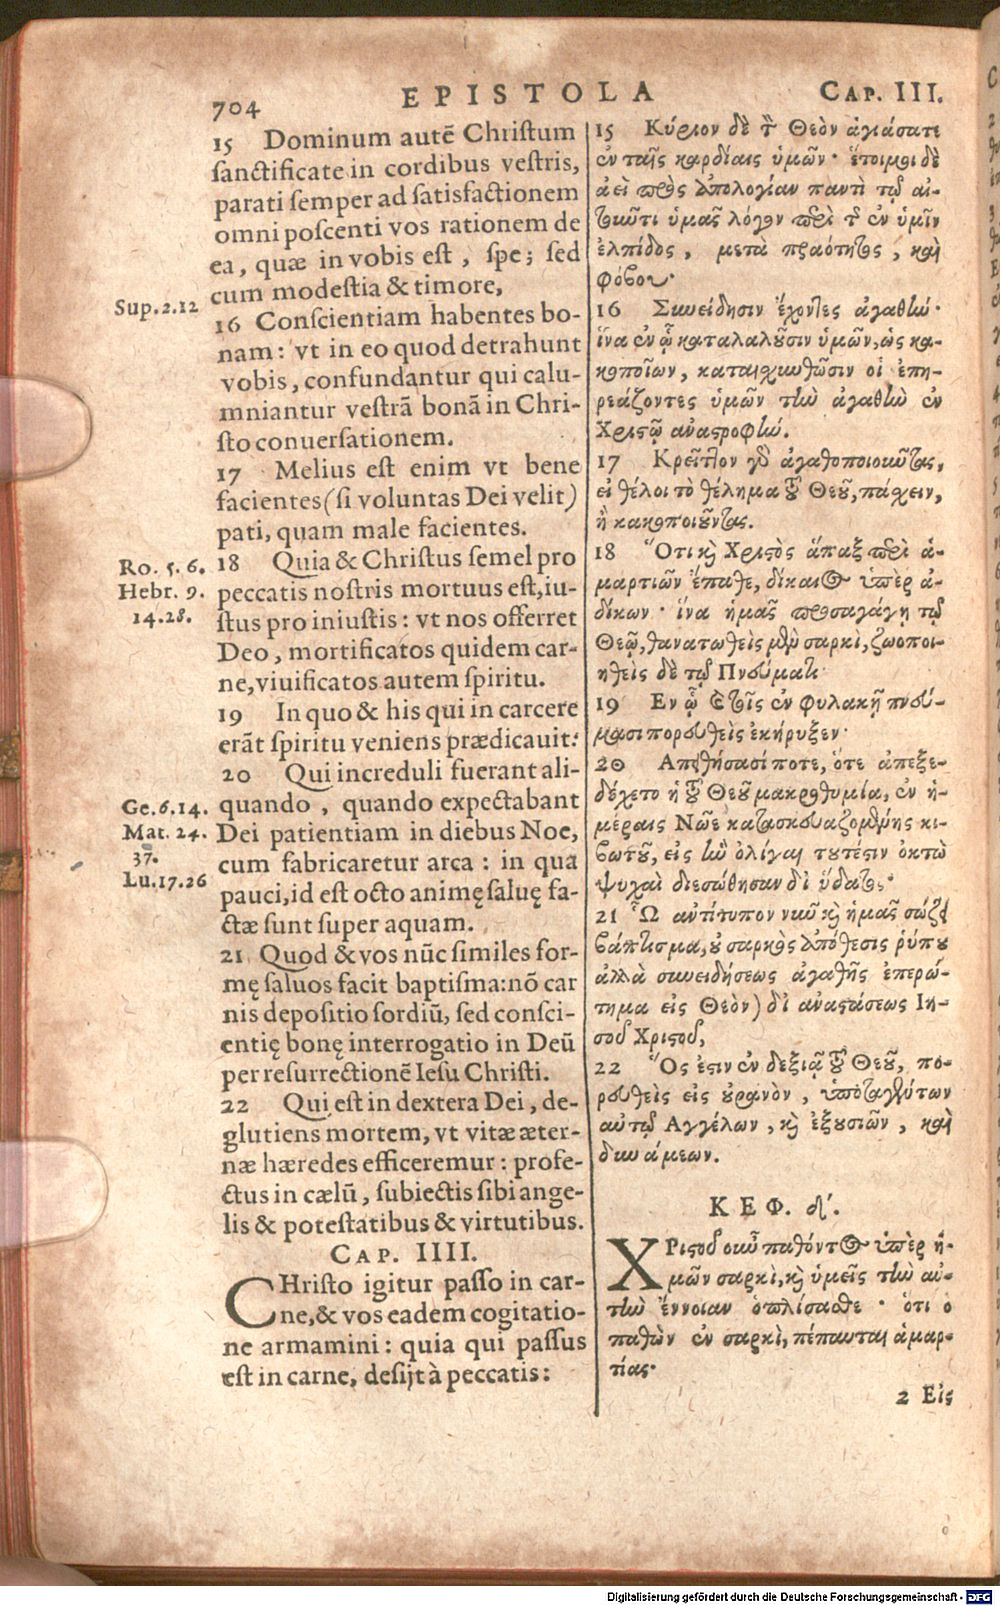 704
EPISTOLA
CAP. III.
15 Dominum autē Christum
sanctificate in cordibus vestris,
parati semper ad satisfactionem
omni poscenti vos rationem de
ea, quæ in vobis est, spe; sed
cum modestia & timore,
Sup.2.12
16 Conscientiam habentes bo-
nam: vt in eo quod detrahunt
vobis, confundantur qui calu-
mniantur vestrā bonā in Chri-
sto conuersationem.
17 Melius est enim vt bene
facientes (si voluntas Dei velit)
pati, quam male facientes.
Ro. 5. 6.
Hebr. 9.
14.28.
18 Quia & Christus semel pro
peccatis nostris mortuus est, iu-
stus pro iniustis: vt nos offerret
Deo, mortificatos quidem car-
ne, viuificatos autem spiritu.
19 In quo & his qui in carcere
erāt spiritu veniens prædicauit:
20 Qui increduli fuerant ali-
Ge.6.14.
Mat. 24.
37.
Lu.17.26
quando, quando expectabant
Dei patientiam in diebus Noe,
cum fabricaretur arca: in qua
pauci, id est octo animę saluę fa-
ctæ sunt super aquam.
21 Quod & vos nūc similes for-
mę saluos facit baptisma: nō car
nis depositio sordiū, sed consci-
entię bonę interrogatio in Deū
per resurrectionē Iesu Christi.
22 Qui est in dextera Dei, de-
glutiens mortem, vt vitæ æter-
næ hæredes efficeremur: profe-
ctus in cælū, subiectis sibi ange-
lis & potestatibus & virtutibus.
CAP. IIII.
CHristo igitur passo in car-
ne, & vos eadem cogitatio-
ne armamini: quia qui passus
est in carne, desijt à peccatis:
15 Κύριον δὲ τὸν Θεὸν ἁγιάσατε
ἐν ταῖς καρδίαις ὑμῶν· ἕτοιμοι δὲ
ἀεὶ πρὸς ἀπολογίαν παντὶ τῷ αἰ-
τοῦντι ὑμᾶς λόγον περὶ τῆς ἐν ὑμῖν
ἐλπίδος, μετὰ πραότητος, καὶ
φόβου·
16 Συνείδησιν ἔχοντες ἀγαθήν·
ἵνα ἐν ᾧ καταλαλοῦσιν ὑμῶν, ὡς κα-
κοποιῶν, καταισχυνθῶσιν οἱ ἐπη-
ρεάζοντες ὑμῶν τὴν ἀγαθὴν ἐν
Χριστῷ ἀναστροφήν.
17 Κρεῖττον γὸ ἀγαθοποιοῦντας,
εἰ θέλοι τὸ θέλημα τοῦ Θεοῦ, πάσχειν,
ἢ κακοποιοῦντας.
18 Ὅτι καὶ Χριστὸς ἅπαξ περὶ ἁ-
μαρτιῶν ἔπαθε, δίκαιος ὑπὲρ ἀ-
δίκων· ἵνα ἡμᾶς προσαγάγῃ τῷ
Θεῷ, θανατωθεὶς μὲν σαρκὶ, ζωοποι-
ηθεὶς δὲ τῷ Πνεύματι·
19 Εν ᾧ καὶ τοῖς ἐν φυλακῇ πνεύ-
μασι πορευθεὶς ἐκήρυξεν·
20 Απειθήσασί ποτε, ὅτε ἀπεξε-
δέχετο ἡ τοῦ Θεοῦ μακροθυμία, ἐν ἡ-
μέραις Νῶε κατασκευαζομένης κι-
βωτοῦ, εἰς ἣν ὀλίγαι τουτέστιν ὀκτὼ
ψυχαὶ διεσώθησαν δι' ὕδατος·
21 Ὧ ἀντίτυπον νῦν καὶ ἡμᾶς σώζει
βάπτισμα, οὐ σαρκὸς ἀπόθεσις ῥύπου
ἀλλὰ συνειδήσεως ἀγαθῆς ἐπερώ-
τημα εἰς Θεὸν) δι' ἀναστάσεως Ιη-
σοῦ Χριστοῦ,
22 Ὅς ἐστιν ἐν δεξιᾷ τοῦ Θεοῦ, πο-
ρευθεὶς εἰς οὐρανὸν, ὑποταγέντων
αὐτῷ Αγγέλων, καὶ ἐξουσιῶν, καὶ
δυνάμεων.
ΚΕΦ. δ'.
ΧΡιστοῦ οὖν παθόντος ὑπὲρ ἡ-
μῶν σαρκὶ, καὶ ὑμεῖς τὴν αὐ-
τὴν ἔννοιαν ὁπλίσασθε· ὅτι ὁ
παθὼν ἐν σαρκὶ, πέπαυται ἁμαρ-
τίας·
2 Εἰς
Digitalisierung gefördert durch die Deutsche Forschungsgemeinschaft - DFG